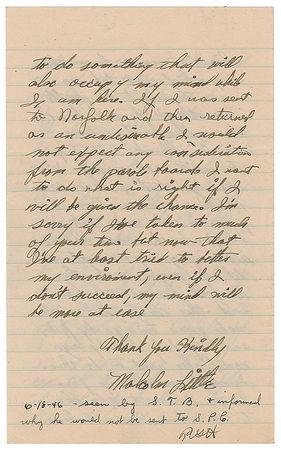 to do something that will
also occupy my mind while
I, am here. If I was sent
to Norfolk and then returned
as an undesirable I would
not expect any consideration
from the parole board. I want
to do what is right if I
will be given the chance. I'm
sorry if I've taken to much
of your time but now that
I've at least tried to better
my enviroment, even if I
don't succeed, my mind will
be more at ease
Thank You Kindly
Malcolm Little
6-18-46 - seen by S.T.B. + informed
why he would not be sent to S.P.C.